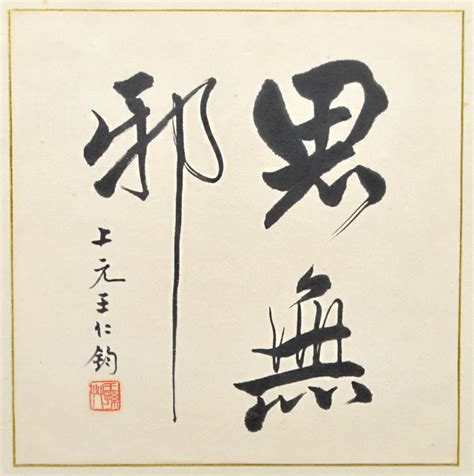 思無
邪
上元王仁鈞